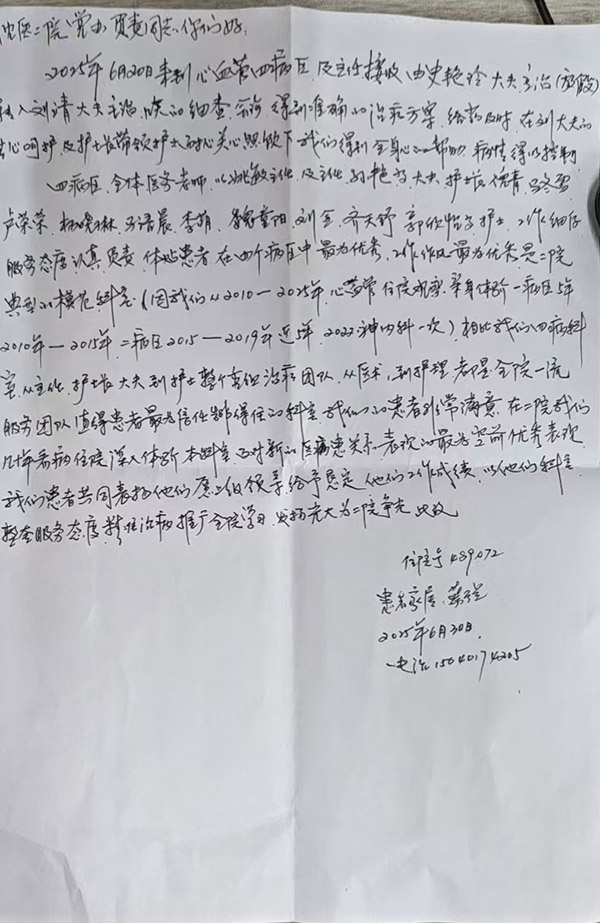 沈医二院党办负责同志:你们好,
2025年6月20日来到心血管四病区 及主任接收 由史艳玲大夫主治(放假)
转入刘清大夫主治,的细查会诊 得到准确的治疗方案,给药及时,在刘大夫的
关心呵护,及护士长带领护士耐心关心照顾下我们得到全身心的帮助 病情得以控制
四病区,全体医务老师,以姚敏主任,及主任,大夫,护士长
卢荣荣,李萌,刘金,齐天舒 护士,工作细仔
服务态度认真负责,体贴患者 在四个病区中最为优秀,工作作风最为优秀是二院
典型的模范科室(因我们从2010—2025年,心血管住院观察,亲身体验一病区5年
2010年—2015年,二病区2015—2019年近5年,2022神内科一次)相比我们四病科
室 从主任,护士长大夫到护士整个责任治疗团队,从医术,到护理 都是全院一流
服务团队 值得患者最为信任 的科室 我们的患者非常满意,在二院我们
几十年看病住院深入体验本科室,对新的医患关系,表现的最为空前优秀表现
我们患者共同表扬他们愿上级领导给予恳定他们工作成绩,以他们科室
整套服务态度,精准治病推广全院学习 发扬光大为二院争光 此致
住院号 489072
患者家属:
2025年6月30日.
电话 15040174205